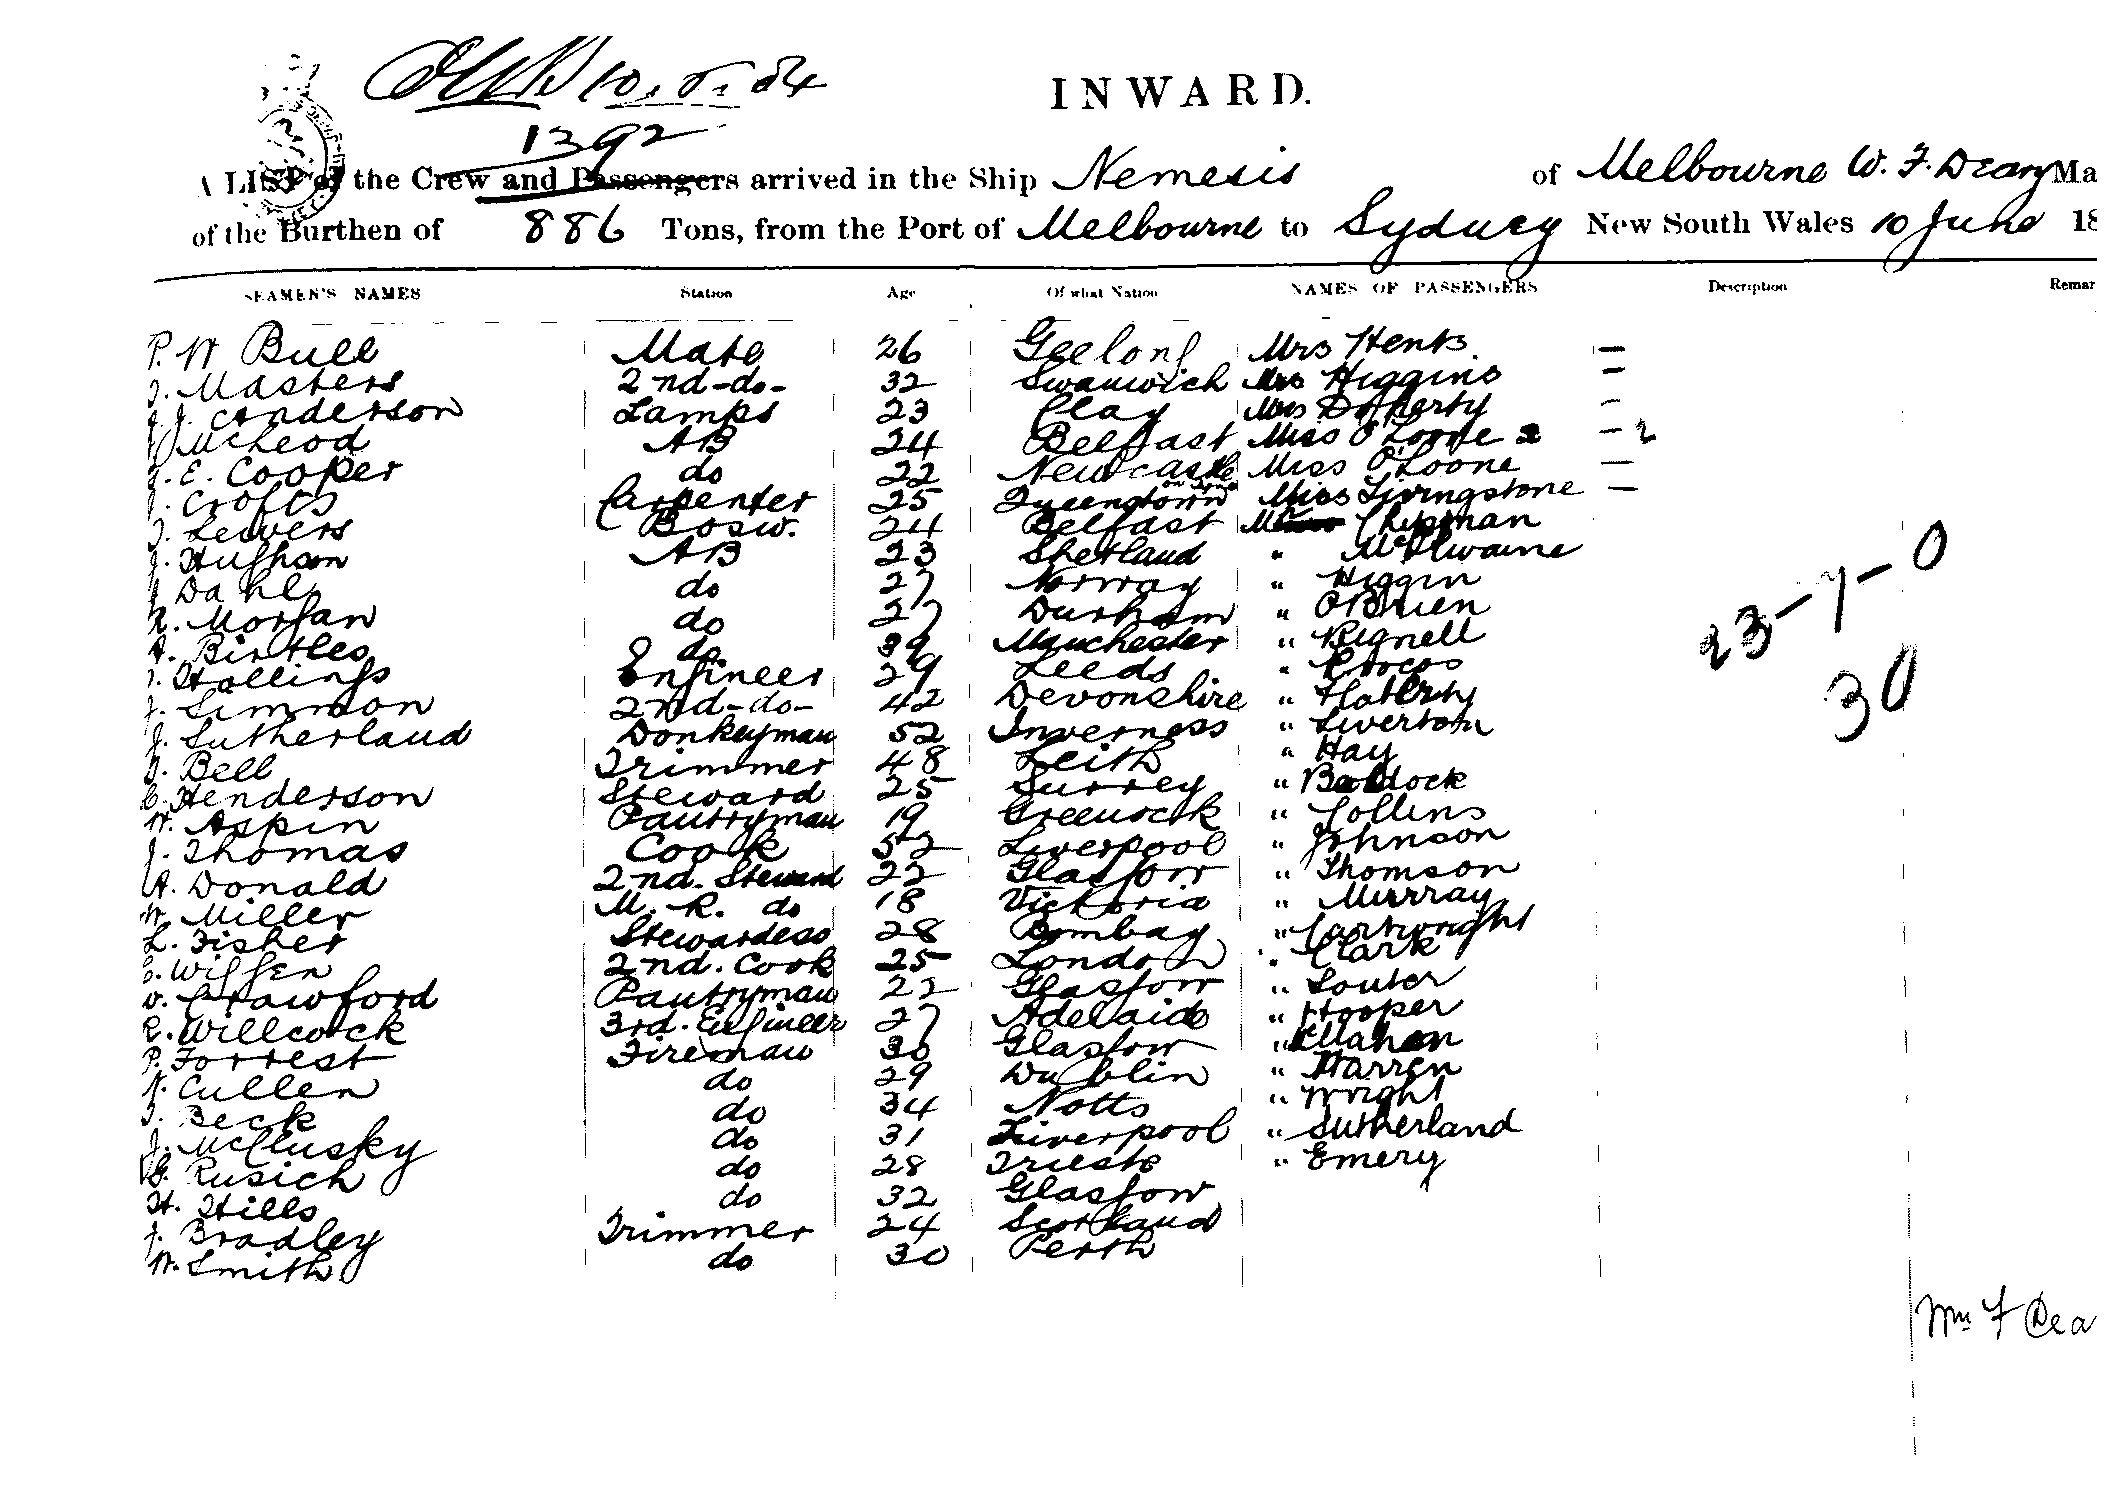 10.6.84
1392
INWARD.
A LIST of the Crew and Passengers arrived in the Ship Nemesis of Melbourne W. F. Deary Ma
of the Burthen of 886 Tons, from the Port of Melbourne to Sydney New South Wales 10 June 18
SEAMEN'S NAMES Station Age Of what Nation NAMES OF PASSENGERS Description Remar
P. W Bull Mate 26 Geelong Mrs Hents. –
J. Masters 2nd-do- 32 Swanwich Mrs Higgins –
J. J. Anderson Lamps 23 Clay Mrs Doherty –
McLeod AB 24 Belfast Miss O'Loone 2 – 2
J. E. Cooper do 22 Newcastle on Tyne Miss O'Loone –
J. Crofts Carpenter 25 Queenstown Miss Livingstone –
J. Leivers Bosw. 24 Belfast Chipman
J. Hughson AB 23 Shetland " McIlwaine
J Dahl do 27 Norway " Higgin
R. Morgan do 27 Durham " O'Brien
A. Birtles do 39 Manchester " Rignell
J. Hollings Engineer 29 Leeds " Cross
J. Simmon 2nd-do- 42 Devonshire " Flaherty
J. Sutherland Donkeyman 52 Inverness " Liverton
G. Bell Trimmer 48 Leith " Hay
C. Henderson Steward 25 Surrey " Baddock
W. Aspin Pantryman 19 Greenock " Collins
J. Thomas Cook 52 Liverpool " Johnson
A. Donald 2nd. Steward 22 Glasgow " Thomson
W. Miller M. R. do 18 Victoria " Murray
L. Fisher Stewardess 28 Bombay " Cartwright
G. Wiffen 2nd. Cook 25 London " Clark
W. Crawford Pantryman 22 Glasgow " Souter
R. Willcock 3rd. Engineer 27 Adelaide " Hooper
P. Forrest Fireman 30 Glasgow " Mahon
N. Cullen do 29 Dublin " Warren
J. Beck do 34 Notts " Wright
J. McClusky do 31 Liverpool " Sutherland
G. Rusich do 28 Trieste " Emery
H. Hills do 32 Glasgow
J. Bradley Trimmer 24 Scotland
W. Smith do 30 Perth
23-7-0
30
Wm F Dea